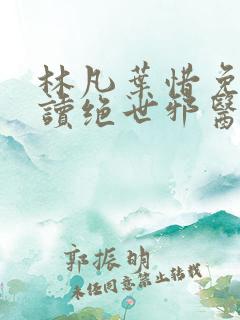 林凡葉惜免
讀绝世邪醫
郭振明
未经同意禁止转载